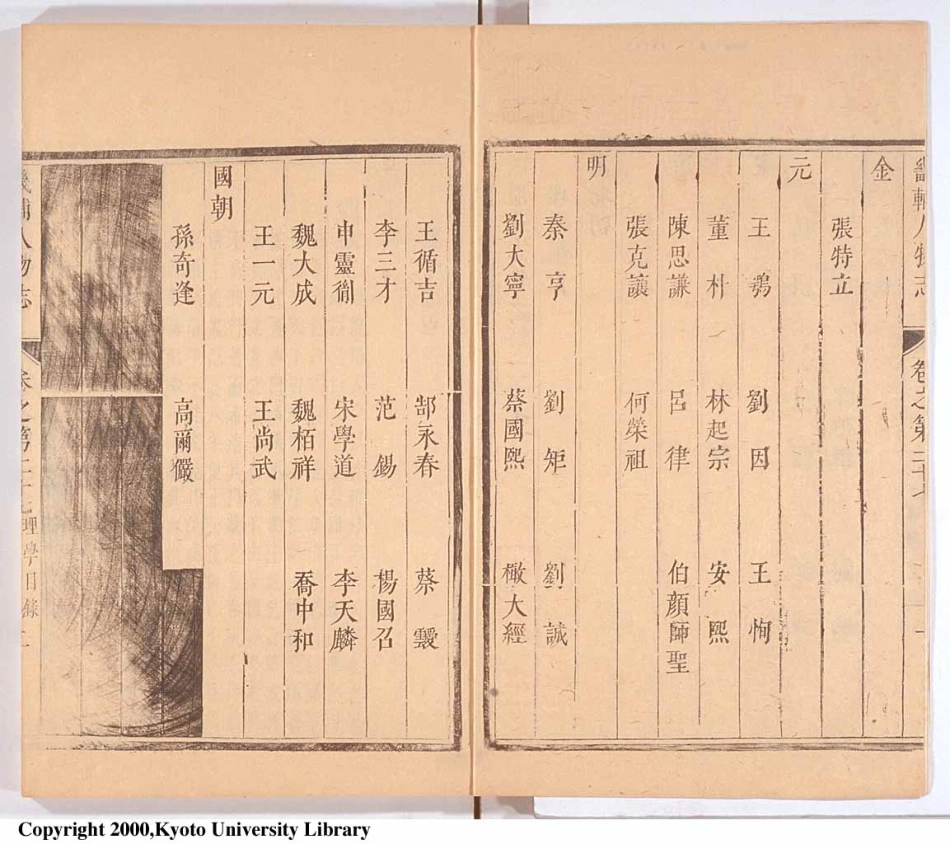 畿輔人物志　卷之第三十七
金
張特立
元
王鶚　劉因　王恂
董朴　林起宗　安熙
陳思謙　呂律　伯顏師聖
張克讓　何榮祖
明
秦亨　劉矩　劉誠
劉大寧　蔡國熙　檄大經
王循吉　郜永春　蔡靉
李三才　范錫　楊國召
申靈衢　宋學道　李天麟
魏大成　魏栢祥　喬中和
王一元　王尚武
國朝
孫奇逢　高爾儼
畿輔人物志　卷之第三十七　理學目錄
Copyright 2000,Kyoto University Library